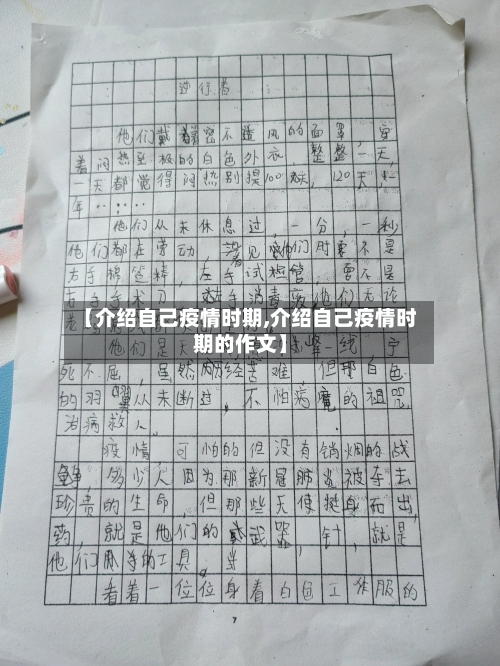 逆行者
他们戴着密不透风的面罩，穿
着闷热至极的白色外衣，整整一天，
一天都觉得闷热别提100天，120天，一
年……
他们从未休息过，一分，一秒
他们都在劳动，看见他们时要不是
右手棉签，左手试管，要不是
右手手术刀，左手消毒液他们无论
【介绍自己疫情时期,介绍自己疫情时
期的作文】
他们是天 一线，宁
死不屈，虽然 经苦难，但那白色
的羽翼从未断过，不怕病魔的祖咒，
治病救人。
疫情，可怕的但没有销烟的战
多少人因为那新冠肺炎被夺去
珍贵的生命，但那些天使挺身而出，
药，就是他们的武器，针，就是
他们的工具，
看着一位位身着白色工作服的
7